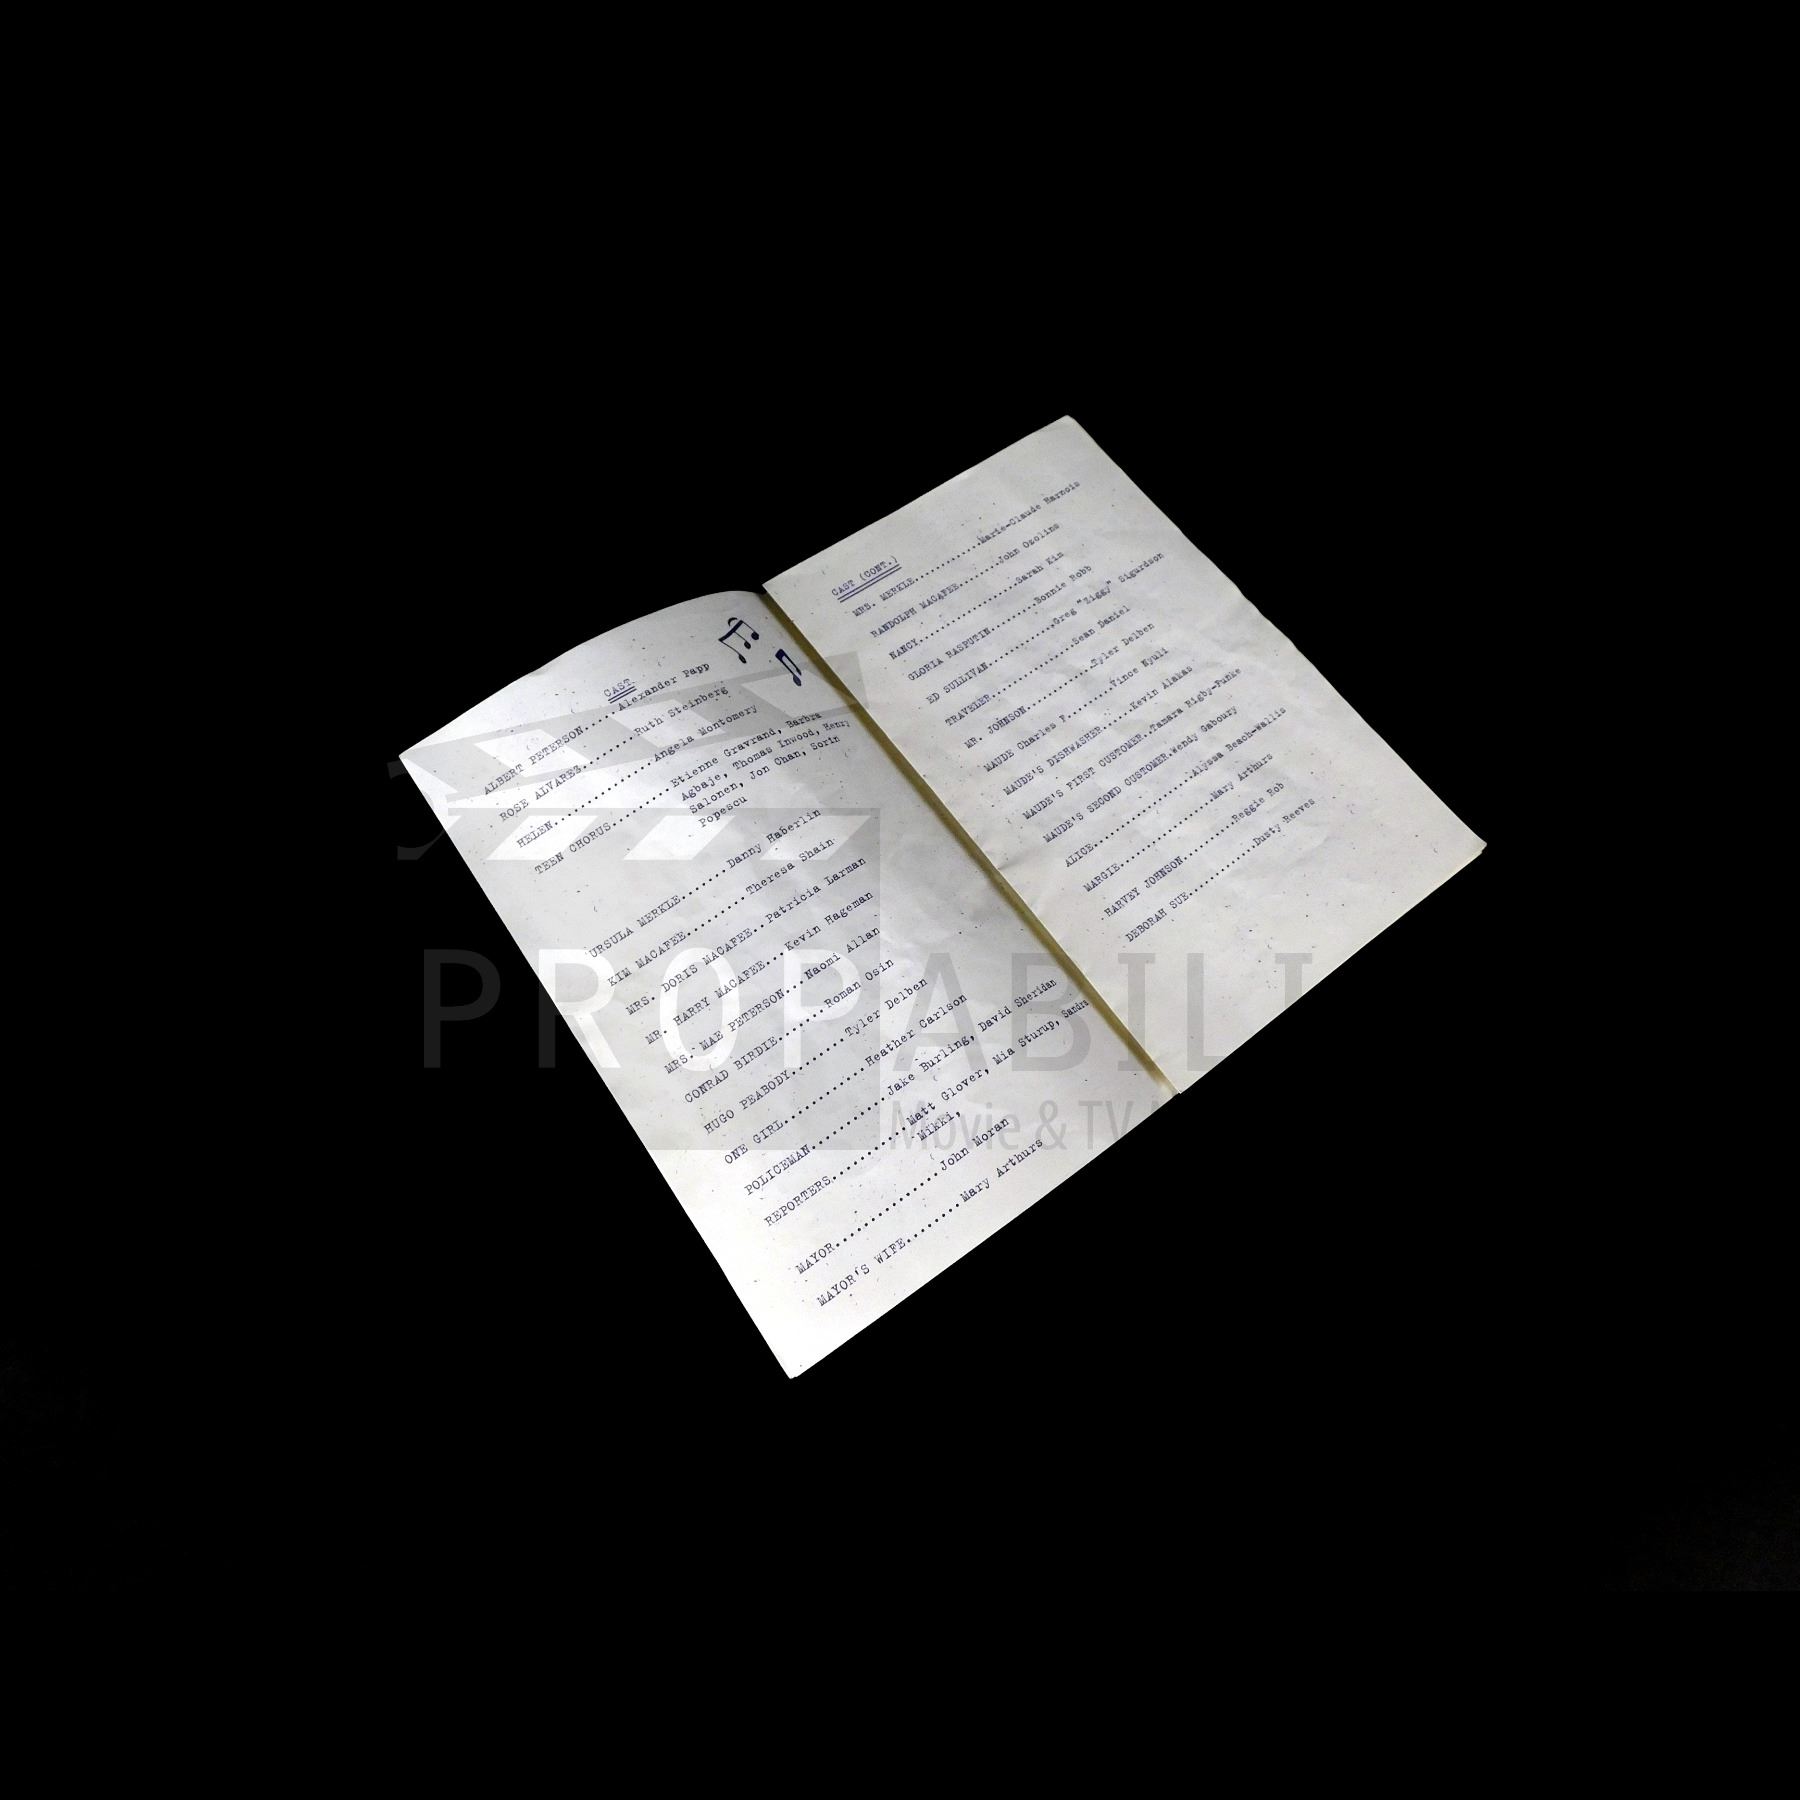 CAST
ALBERT PETERSON.....Alexander Papp
ROSE ALVAREZ........Ruth Steinberg
HELEN...............Angela Montomery
TEEN CHORUS.........Etienne Gravrand, Barbra
Agbaje, Thomas Inwood, Henry
Salonen, Jon Chan, Sorin
Popescu
URSULA MERKLE.......Danny Haberlin
KIM MACAFEE.........Theresa Shain
MRS. DORIS MACAFEE..Patricia Larman
MR. HARRY MACAFEE...Kevin Hageman
MRS. MAE PETERSON...Naomi Allan
CONRAD BIRDIE.......Roman Osin
HUGO PEABODY........Tyler Delben
ONE GIRL............Heather Carlson
POLICEMAN...........Jake Burling, David Sheridan
REPORTERS...........Matt Glover, Mia Sturup, Sandra
Mikki,
MAYOR...............John Moran
MAYOR'S WIFE........Mary Arthurs
CAST (CONT.)
MRS. MERKLE.............Marie-Claude Harnois
RANDOLPH MACAFEE........John Ozolins
NANCY...................Sarah Kim
GLORIA RASPUTIN.........Bonnie Robb
ED SULLIVAN.............Greg "Ziggy" Sigurdson
TRAVELER................Sean Daniel
MR. JOHNSON.............Tyler Delben
MAUDE Charles F.........Vince Nyuli
MAUDE'S DISHWASHER......Kevin Alakas
MAUDE'S FIRST CUSTOMER..Tamara Rigby-Funke
MAUDE'S SECOND CUSTOMER.Wendy Gaboury
ALICE...................Alyssa Beach-Wallis
MARGIE..................Mary Arthurs
HARVEY JOHNSON..........Reggie Rob
DEBORAH SUE.............Dusty Reeves
PROPABILI
Movie & TV